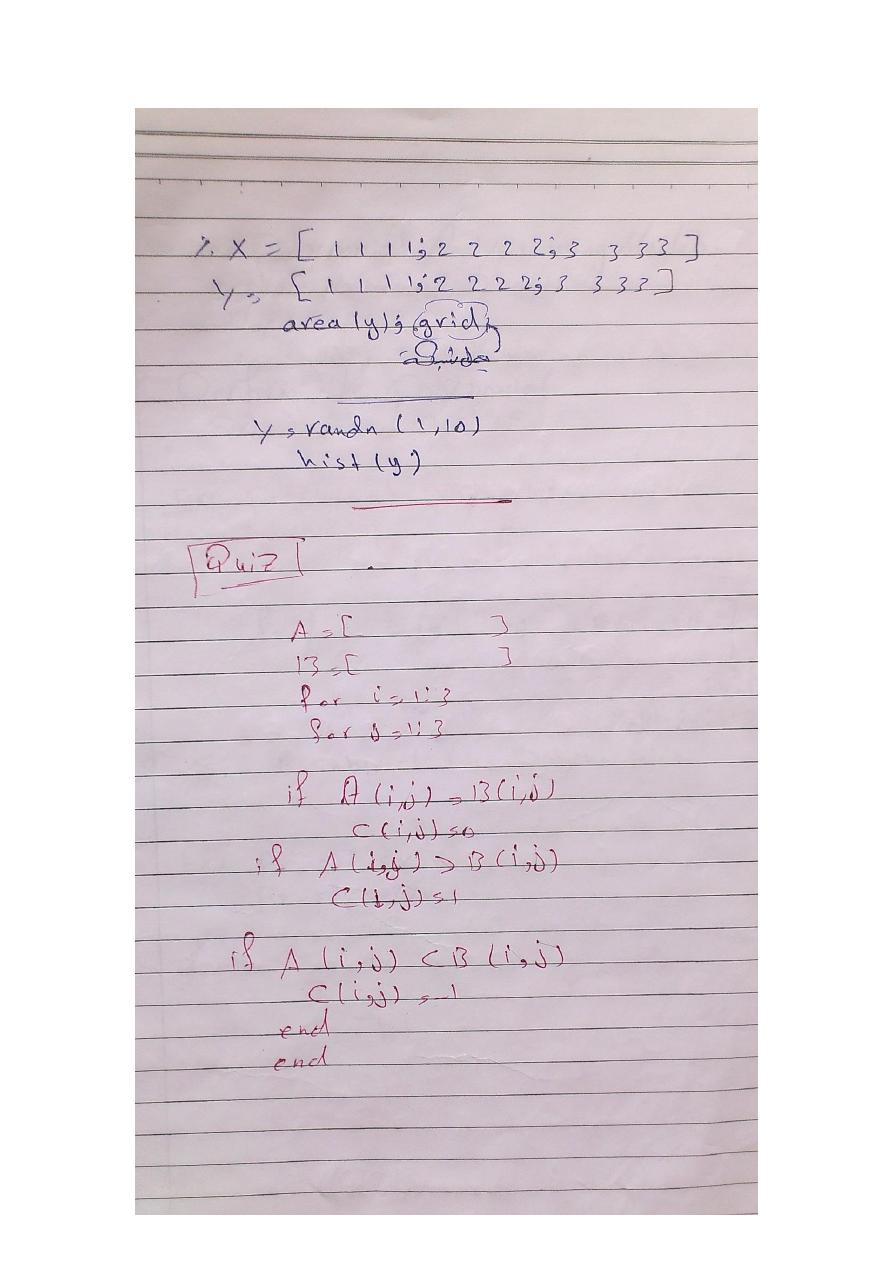 % X = [ 1 1 1 1; 2 2 2 2; 3 3 3 3 ]
Y = [ 1 1 1 1; 2 2 2 2; 3 3 3 3 ]
area (y); grid;
Y = randn (1,10)
hist (y)
Quiz
A = [ ]
B = [ ]
for i = 1:3
for j = 1:3
if A (i,j) = B (i,j)
C (i,j) = 0
if A (i,j) > B (i,j)
C (i,j) = 1
if A (i,j) < B (i,j)
C (i,j) = -1
end
end